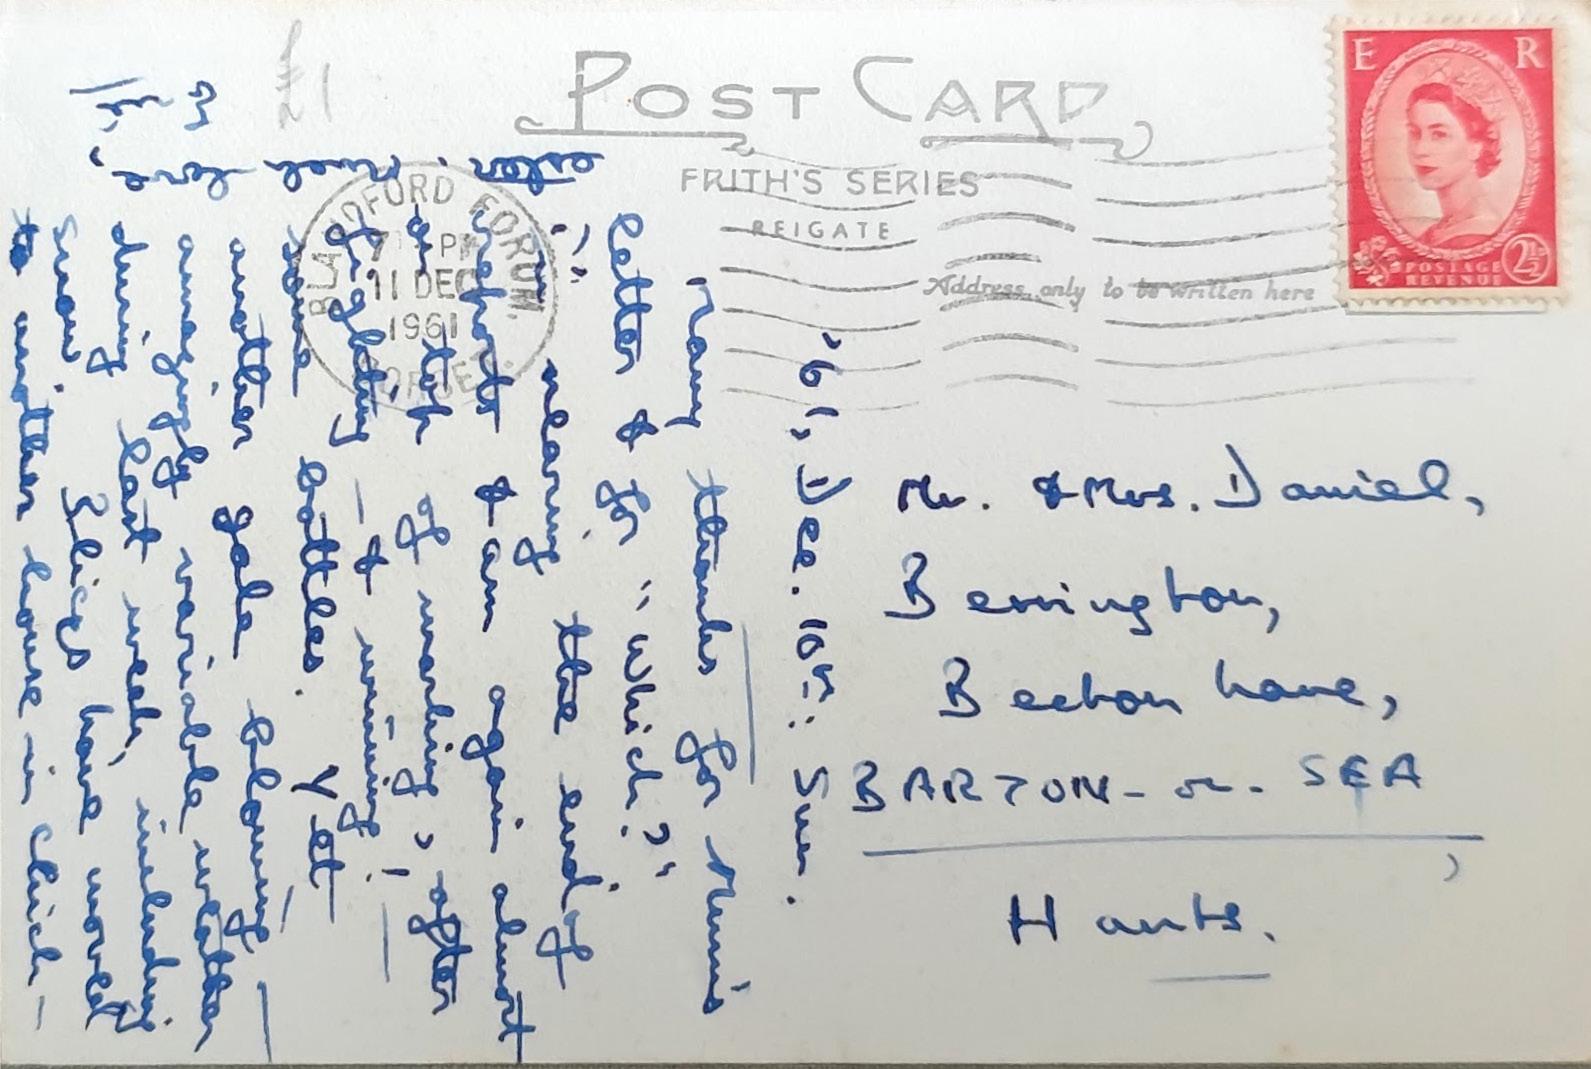 POST CARD
FRITH'S SERIES
REIGATE
Address only to be written here
E R
POSTAGE
REVENUE
2½
BLANDFORD FORUM.
7 PM
11 DEC
1961
DORSET.
£1
'61, Dec. 10th: Sun.
Many thanks for Mum's
letter & for "Which?"
I'm nearing the end of
reports & am again almost
on top of marking, after
fighting – & winning! –
some battles. Yet
another gale blowing –
amazingly variable weather
during last week, including
snow. Slices have moved
to another house in Chich-
ester. Much love,
Mr. & Mrs. Daniel,
Berrington,
Becton Lane,
BARTON-on-SEA,
Hants.